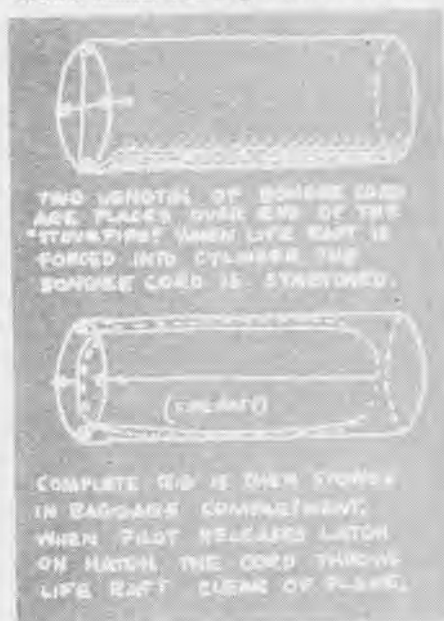 TWO LENGTHS OF BONGEE CORD
ARE PLACES OVER END OF THE
WHEN LIFE RAFT IS
FORCED INTO CYLINDER THE
BONGEE CORD IS STRETCHED.
(LIFE RAFT)
COMPLETE RIG IS THEN STOWED
IN BAGGAGE COMPARTMENT.
WHEN PILOT RELEASES LATCH
ON HATCH THE CORD THROWS
LIFE RAFT CLEAR OF PLANE.